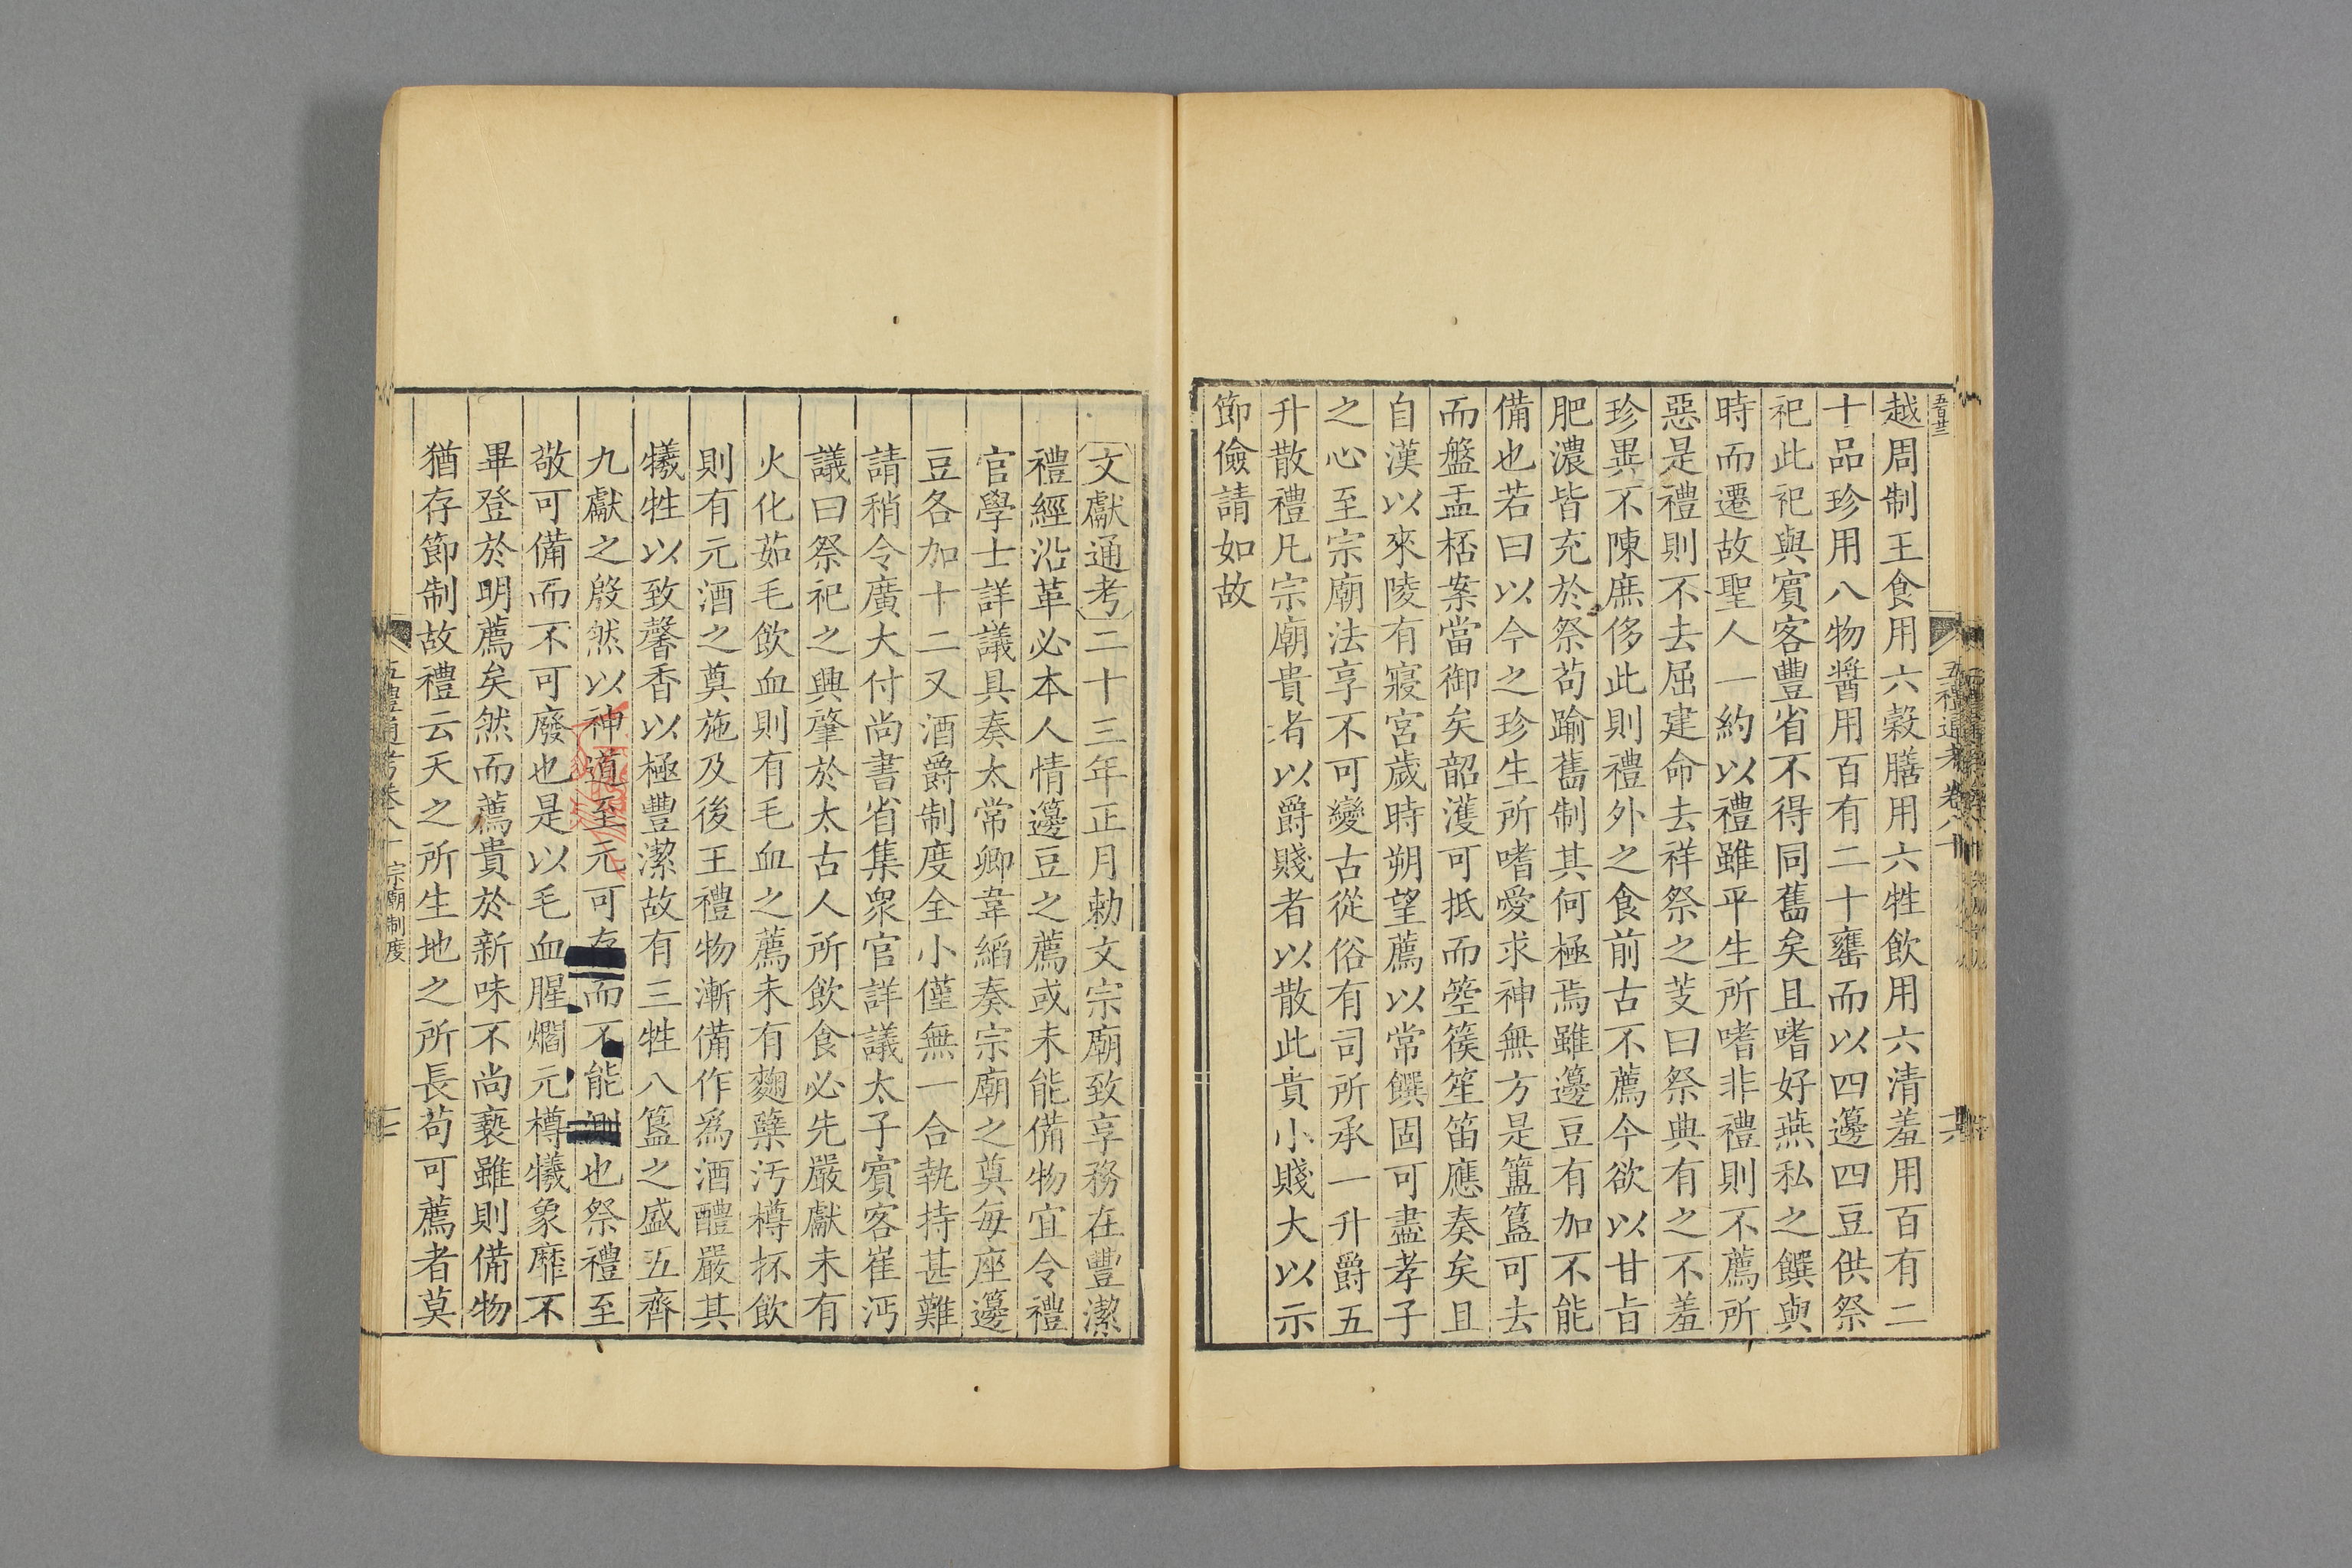 五百廿三
越周制王食用六穀膳用六牲飲用六清羞用百有二
十品珍用八物醬用百有二十罋而以四籩四豆供祭
祀此祀與賓客豐省不得同舊矣且嗜好燕私之饌與
時而遷故聖人一約以禮雖平生所嗜非禮則不薦所
惡是禮則不去屈建命去祥祭之芰曰祭典有之不羞
珍異不陳庶侈此則禮外之食前古不薦今欲以甘旨
肥濃皆充於祭苟踰舊制其何極焉雖籩豆有加不能
備也若曰以今之珍生所嗜愛求神無方是簠簋可去
而盤盂桮案當御矣韶濩可抵而箜篌笙笛應奏矣且
自漢以來陵有寢宮歲時朔望薦以常饌固可盡孝子
之心至宗廟法享不可變古從俗有司所承一升爵五
升散禮凡宗廟貴者以爵賤者以散此貴小賤大以示
節儉請如故
五禮通考卷八十
文獻通考二十三年正月勅文宗廟致享務在豐潔
禮經沿革必本人情籩豆之薦或未能備物宜令禮
官學士詳議具奏太常卿韋縚奏宗廟之奠每座籩
豆各加十二又酒爵制度全小僅無一合執持甚難
請稍令廣大付尚書省集衆官詳議太子賓客崔沔
議曰祭祀之興肇於太古人所飲食必先嚴獻未有
火化茹毛飲血則有毛血之薦未有麴蘖汙樽抔飲
則有元酒之奠施及後王禮物漸備作爲酒醴嚴其
犧牲以致馨香以極豐潔故有三牲八簋之盛五齊
九獻之殷然以神道至元可存而不能測也祭禮至
敬可備而不可廢也是以毛血腥爓元樽犧象靡不
畢登於明薦矣然而薦貴於新味不尚褻雖則備物
猶存節制故禮云天之所生地之所長苟可薦者莫
五禮通考卷八十 宗廟制度